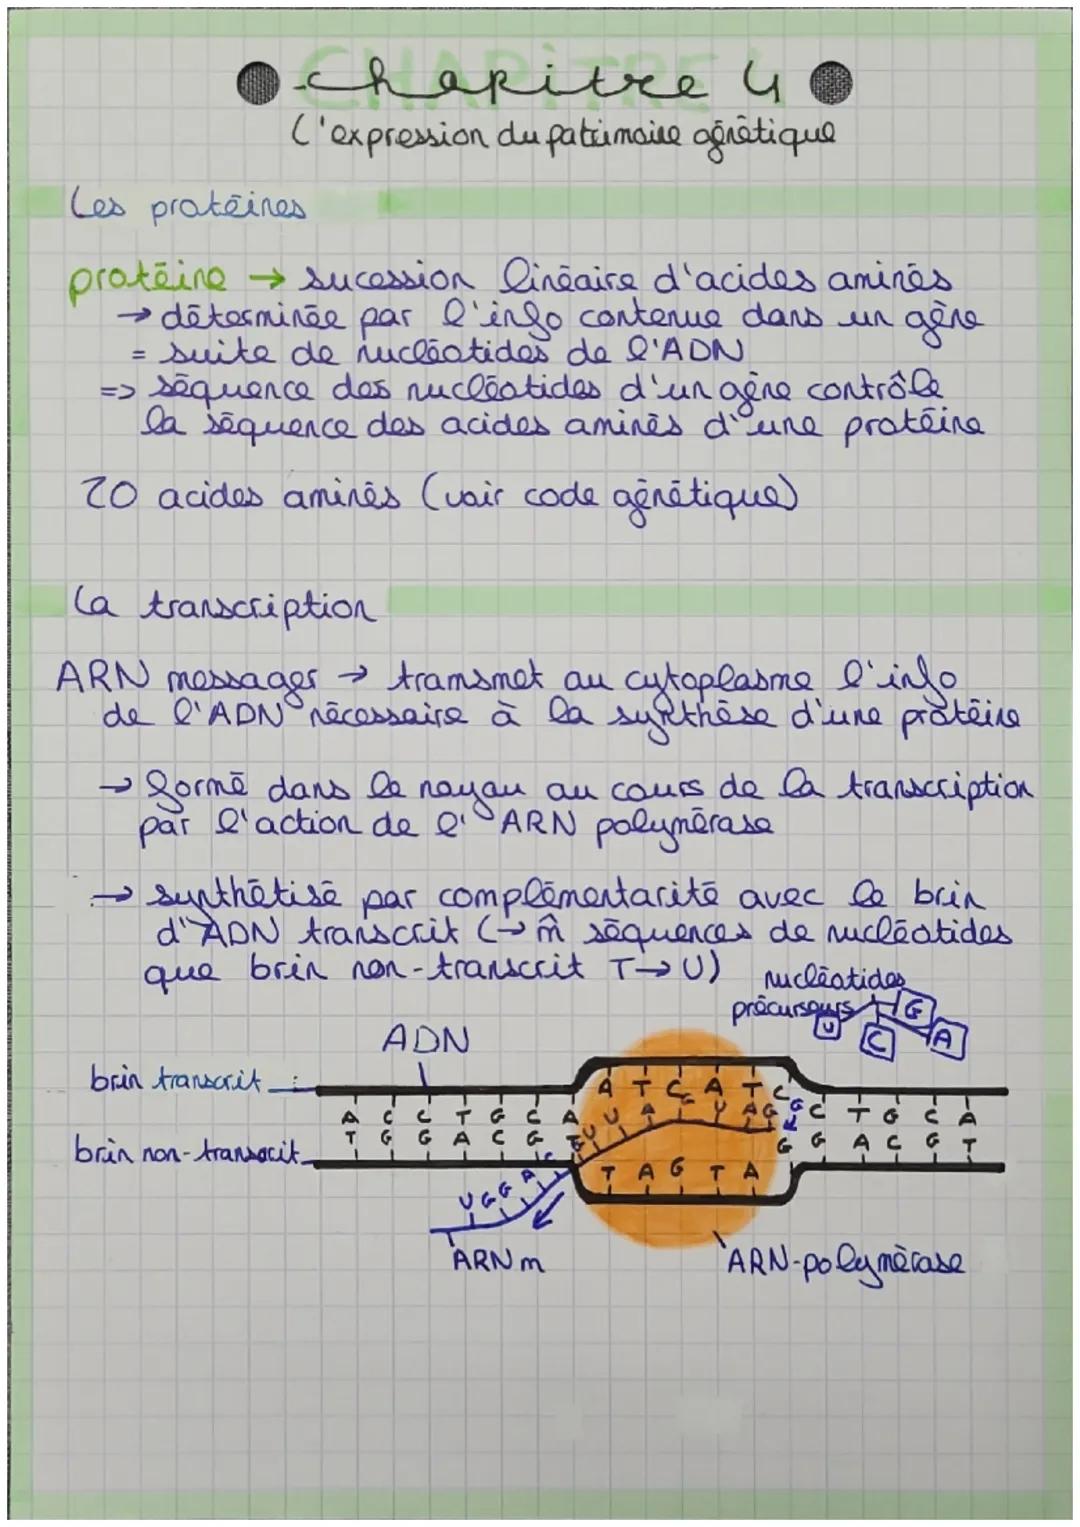 CHAPITRE 4
chapitre 4
L'expression du patrimoine génétique
Les protéines
protéine → sucession linéaire d'acides aminés
→ déterminée par l'info contenue dans un gène
= suite de nucléotides de l'ADN
=> séquence des nucléotides d'un gène contrôle
la séquence des acides aminés d'une protéine
20 acides aminés (voir code génétique)
La transcription
ARN messager → transmet au cytoplasme l'info
de l'ADN nécessaire à la synthèse d'une protéine
→ formé dans le noyau au cours de la transcription
par l'action de l'ARN polymérase
→ synthétisé par complémentarité avec le brin
d'ADN transcrit (→ m̂ séquences de nucléotides
que brin non-transcrit T→U)
nucléotides
précurseurs
U C G A
ADN
brin transcrit
A T C A T C
A C C T G C A
C T G C A
brin non-transcrit
T G G A C G T
G G A C G T
T A G T A
U G G A C
ARN m
ARN-polymérase